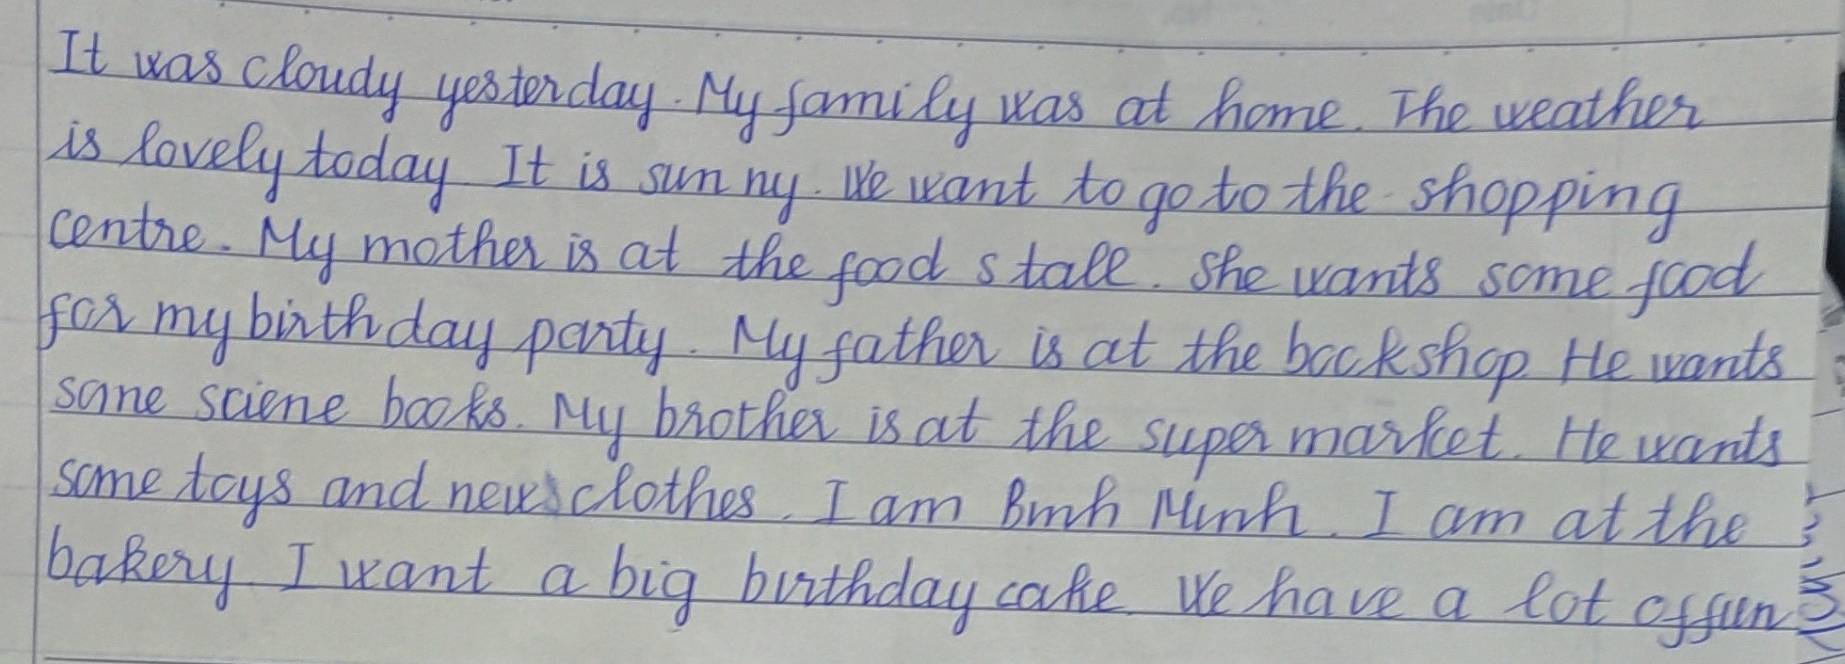 It was cloudy yesterday. My family was at home. The weather
is lovely today It is sunny. We want to go to the shopping
centre. My mother is at the food stall. She wants some food
for my birthday party. My father is at the bookshop He wants
some sciene books. My brother is at the supermarket. He wants
some toys and new clothes. I am Binh Minh. I am at the
bakery I want a big birthday cake We have a lot of fun